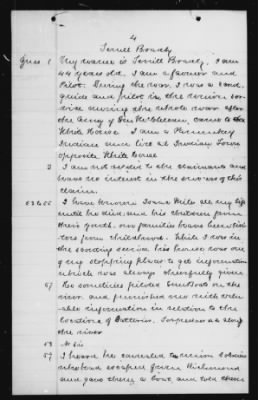 4
Terrill Bradby
Ques 1 My name is Terrill Bradby. I am
44 years old. I am a farmer and
Pilot. During the war, I was a land
guide and pilot in the union ser-
vice during the whole war after
the army of Gen McClellan, came to the
White House I am a Pamunkey
Indian and live at Indian Town
opposite White House
2 I am not related to the claimant and
have no interest in the success of this
claim.
I have known Isaac Miles all my life
until he died and his children from
their youth. Our families have been
from childhood. While I was in
the scouting service his house was one
of my stopping places to get information
which was always cheerfully given
57 He sometimes piloted Gunboats on the
river and furnished me with valu-
able information in relation to the
locations of Batteries, Torpedoes &c along
the river
53 No sir
57 I know he carried union soldiers
who had escaped from Richmond
and gave them a boat and told them